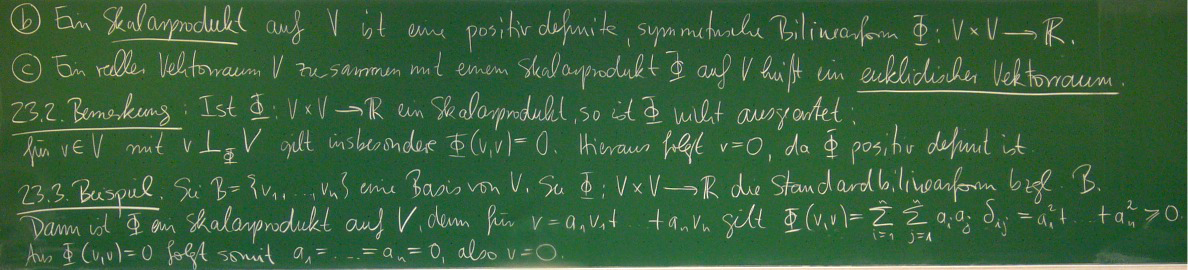 ⓑ Ein Skalarprodukt auf V ist eine positiv definite, symmetrische Bilinearform Φ: V × V ⟶ ℝ.
ⓒ Ein reeller Vektorraum V zusammen mit einem Skalarprodukt Φ auf V heißt ein euklidischer Vektorraum.
23.2. Bemerkung: Ist Φ: V × V ⟶ ℝ ein Skalarprodukt, so ist Φ nicht ausgeartet:
für v∈V mit v ⊥_Φ V gilt insbesondere Φ(v,v) = 0. Hieraus folgt v=0, da Φ positiv definit ist.
23.3. Beispiel. Sei B = {v₁, ..., vₙ} eine Basis von V. Sei Φ: V × V ⟶ ℝ die Standardbilinearform bzgl. B.
Dann ist Φ ein Skalarprodukt auf V, denn für v = a₁v₁ + ... + aₙvₙ gilt Φ(v,v) = ∑_{i=1}^{n} ∑_{j=1}^{n} aᵢaⱼ δᵢⱼ = a₁² + ... + aₙ² ≥ 0.
Aus Φ(v,v) = 0 folgt somit a₁ = ... = aₙ = 0, also v = 0.